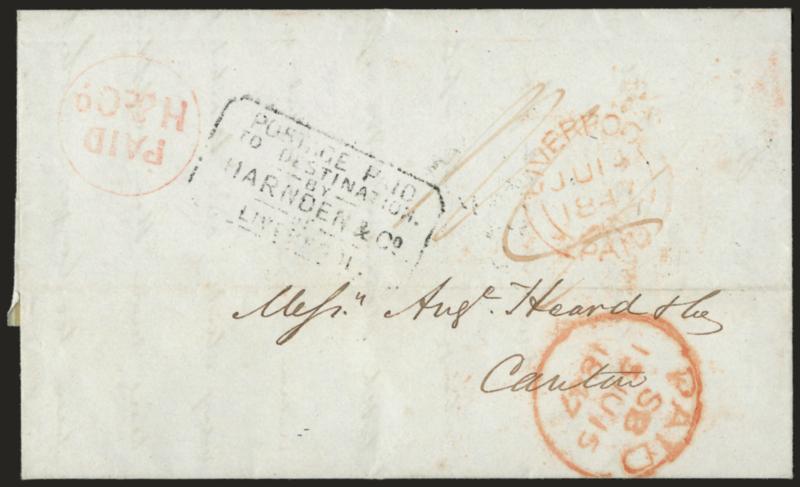 PAID
H & Co
POSTAGE PAID
TO DESTINATION.
BY
HARNDEN & Co
OF
LIVERPOOL
LIVERPOOL
JU 14
1847
PAID
Messrs Auge. Heard & Co
Canton
PAID
SB
JU 15
1847